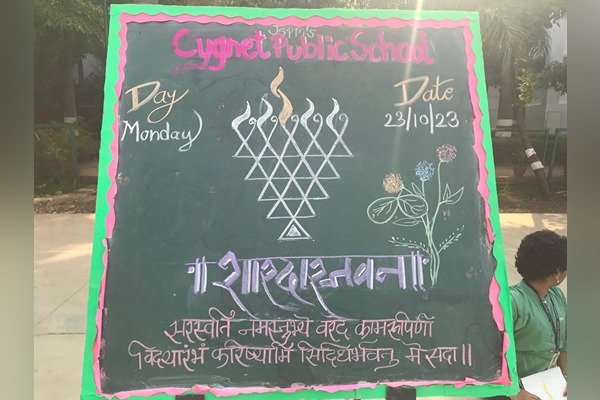 JSPM's
Cygnet Public School
Day
Monday
Date
23/10/23
॥ शारदास्तवन ॥
सरस्वति नमस्तुभ्यं वरदे कामरूपिणी
विद्यारंभं करिष्यामि सिद्धिर्भवतु मे सदा॥